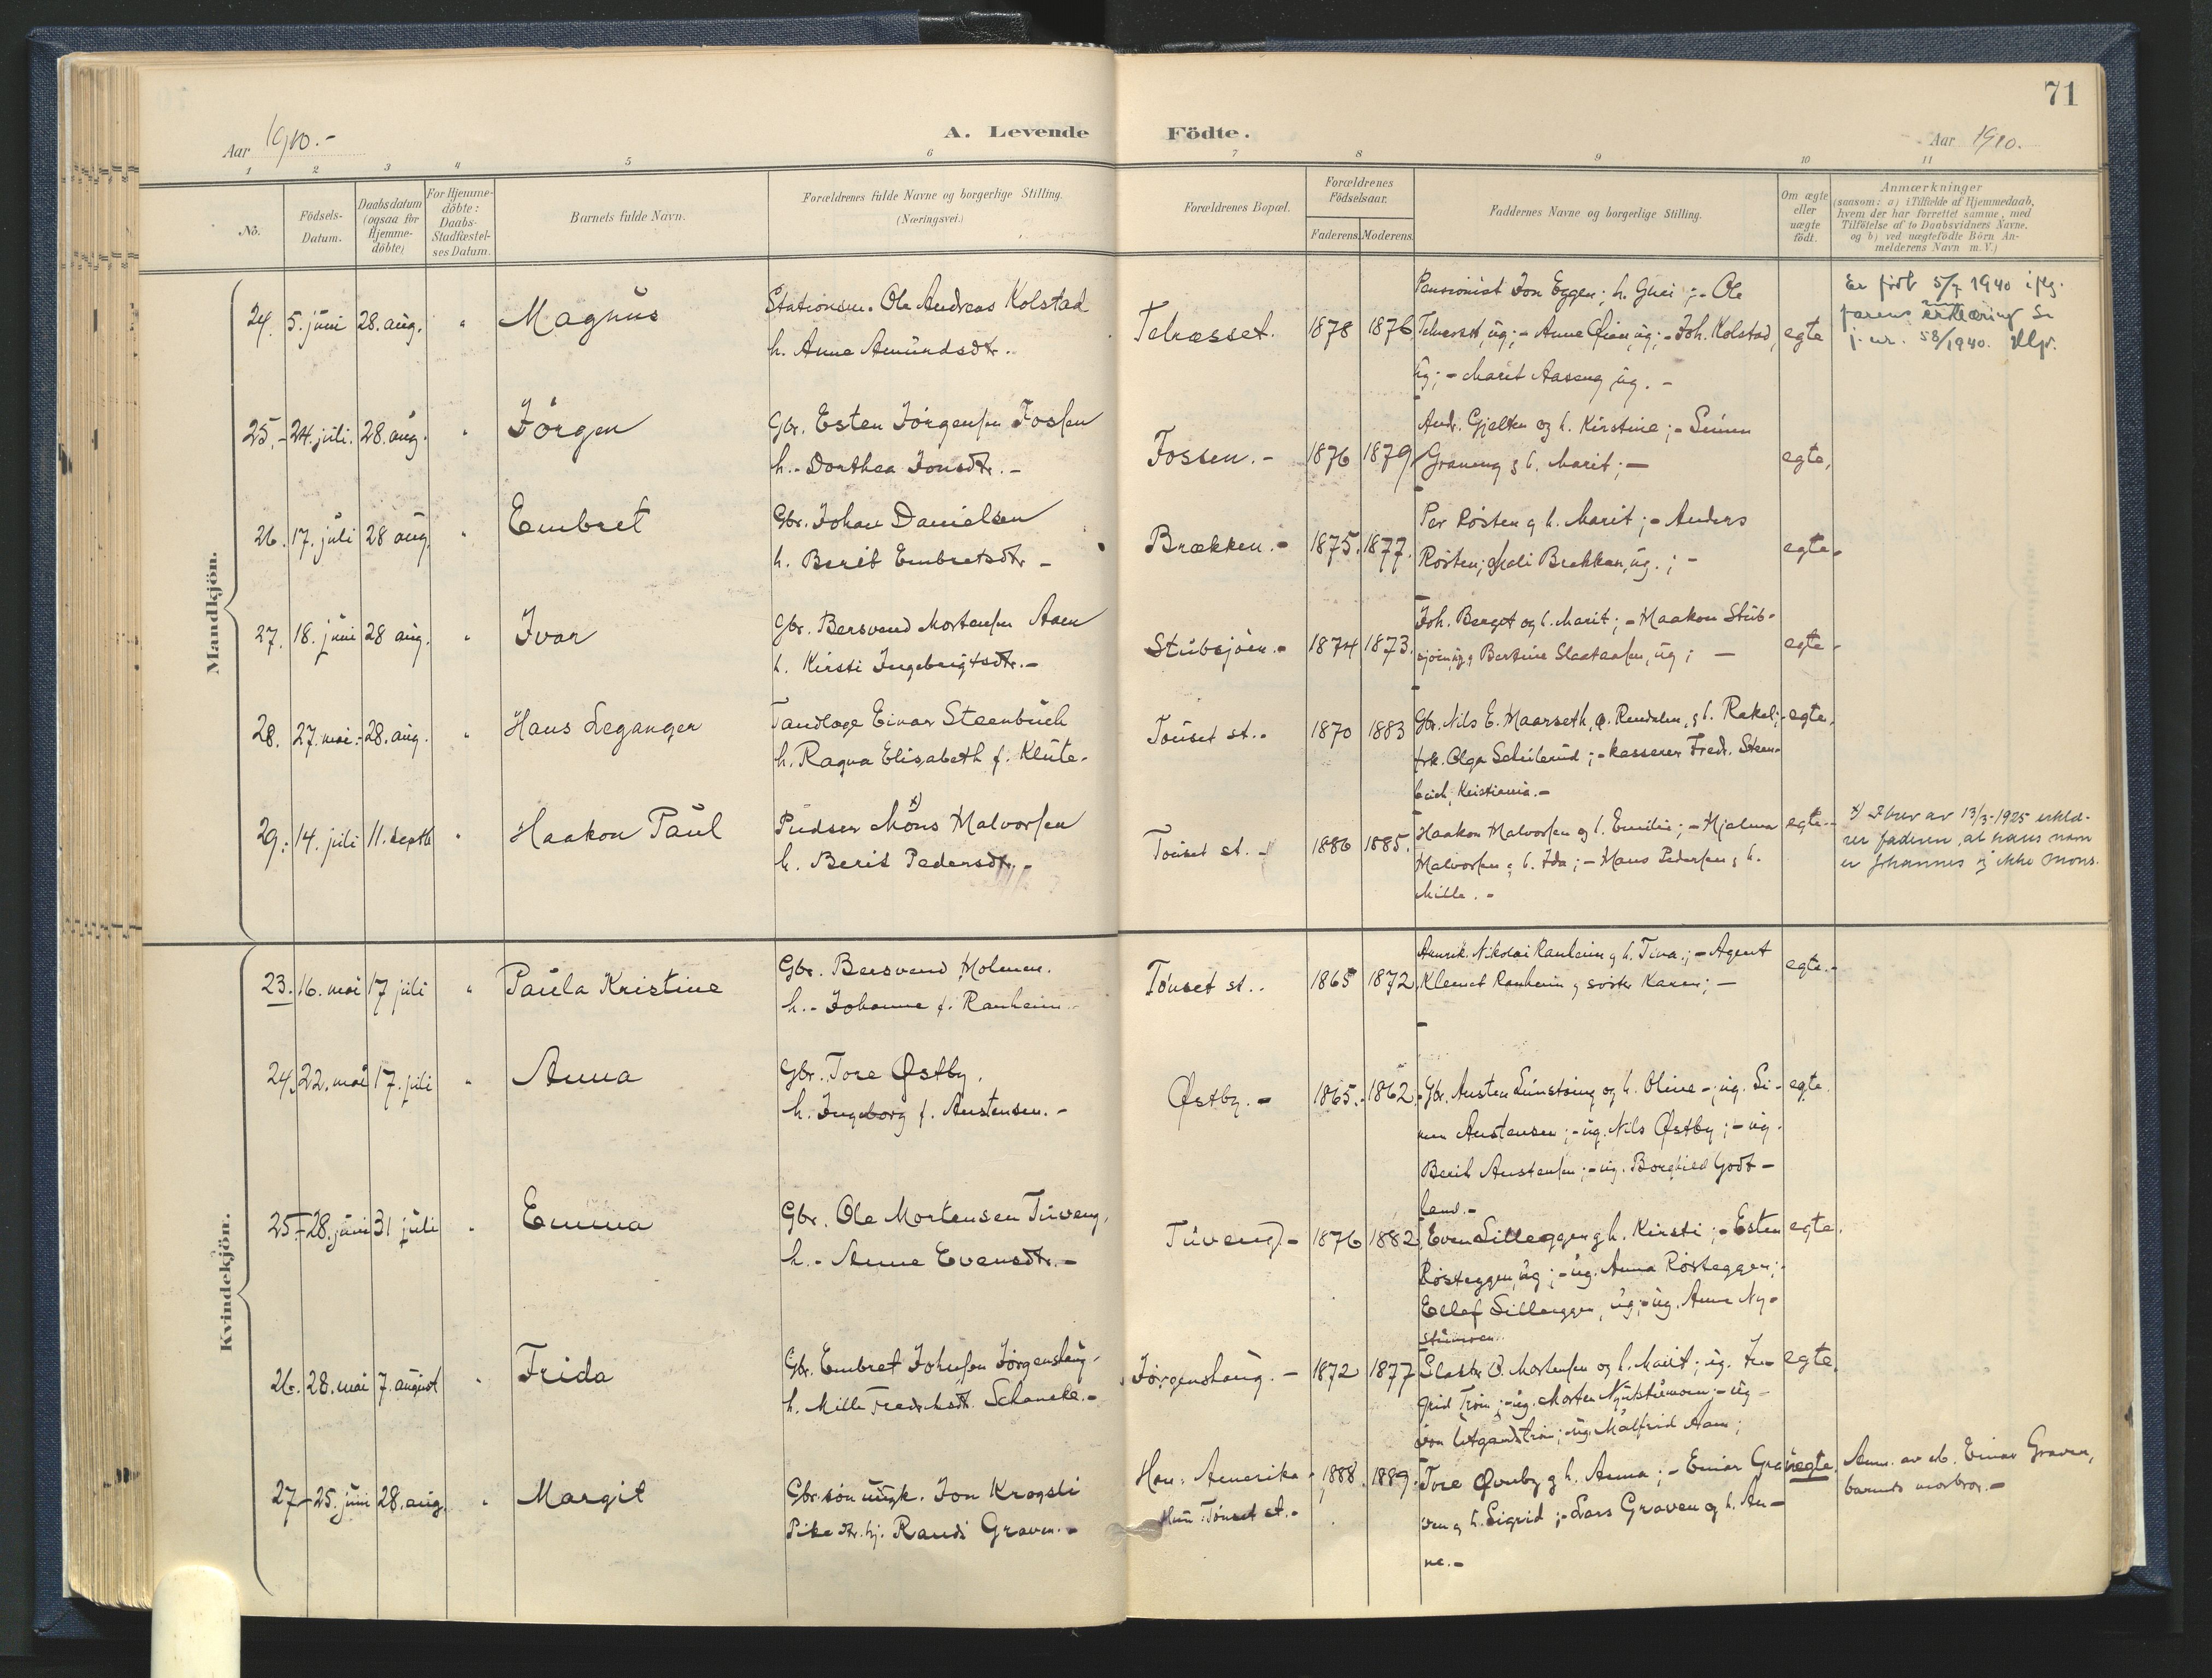 71
Aar 1910.-
A. Levende Födte.
Aar 1910.
1 2 3 4 5 6 7 8 9 10 11
No.
Födsels-
Datum.
Daabsdatum
(ogsaa for
Hjemme-
döbte)
For Hjemme-
döbte:
Daabs-
Stadfæstel-
ses Datum.
Barnets fulde Navn.
Forældrenes fulde Navne og borgerlige Stilling.
(Næringsvei.)
Forældrenes Bopæl.
Forældrenes
Födselsaar.
Faderens. Moderens.
Faddernes Navne og borgerlige Stilling.
Om ægte
eller
uægte
födt.
Anmærkninger
(saasom: a) i Tilfælde af Hjemmedaab,
hvem der har forrettet samme, med
Tilföielse af to Daabsvidners Navne.
og b) ved uægtefödte Börn An-
melderens Navn m. V.)
Mandkjön.
24. 5. juni 28. aug. " Magnus
Stationsm. Ole Andreas Kolstad
h. Anne Amundsdtr.
Telnesset. 1878 1876
Pensionist Jon Eggen; h. Guri; - Ole
Telnesset, ug; - Anne Öien, ug; - Joh. Kolstad,
ug; - Marit Aaseng, ug. -
egte
Er født 5/7 1940 iflg.
farens erklæring Se
j. nr. 58/1940.
25.- 24. juli. 28. aug. " Jörgen
Gbr. Esten Jörgensen Fossen
h.- Dorthea Jonsdtr. -
Fossen.- 1876 1879
And. Gjelten og h. Kirstine; - Simen
Graneng og h. Marit; -
egte,
26. 17. juli 28 aug. " Embret
Gbr. Johan Danielsen
h. Berit Embretsdtr -
Brækken.- 1875. 1877.
Per Rösten og h. Marit; - Anders
Rösten; Mali Brekken, ug.; -
egte-
27. 18. juni 28 aug. " Ivar
Gbr. Bersvend Mortensen Aaen
h. Kirsti Ingebrigtsdtr.-
Stubsjöen.- 1874 1873.
Joh. Berget og h. Marit; - Haakon Stub-
sjöen, ug, Bertine Slaataasen, ug; -
egte-
28. 27. mai.- 28. aug. " Hans Leganger
Tandlæge Einar Steenbuch
h. Ragna Elisabeth f. Klute.
Tönset st.. 1870 1883
Gbr. Nils E. Haarseth, Ö. Rendalen, og h. Rakel;
frk. Olga Schilerud; - kasserer Fredr. Steen-
buch, Kristiania.-
egte.
29.- 14. juli 11. septb " Haakon Paul
x)
Pudser Möns Halvorsen
h. Berit Pedersdtr.
Tönset st. - 1886 1885.
Haakon Halvorsen og h. Emilie; - Hjelmar
Halvorsen og h. Ida; - Hans Pedersen og h.
Mille. -
egte.-
x) I brev av 13/3-1925 erklæ-
rer faderen, at hans navn
er Johannes og ikke Mons.
Kvindekjön.
23. 16. mai 17 juli " Paula Kristine
Gbr. Bersvend Holmen.
h.- Johanne f. Ranheim.
Tönset st.. 1865 1872
Nikolai Ranheim og h. Tina.; - Agent
Klemet Ranheim og söster Karen; -
egte.-
24. 22. mai 17. juli " Anna
Gbr. Tore Østby.
h. Ingeborg f. Austensen.-
Østby.- 1865.- 1862.
Gbr. Austen Lunstöeng og h. Oline - ; ug. Si-
men Austensen; - ug. Nils Østby; - ug.
Berit Austensen; - ug. Borghild Godt-
land.-
egte.
25.- 28. juni 31 juli " Emma
Gbr. Ole Mortensen Tuveng,
h.- Anne Evensdtr.-
Tuveng- 1876 1882
Even Lilleeggen og h. Kirsti; - Esten
Rösteggen, ug; - ug. Anna Rösteggen;
Ellef Lilleeggen, ug; - ug. Anne Ny-
stumoen.
egte.
26. 28. mai 7. august " Frida
Gbr. Embret Johnsen Jörgenshaug-
h. Mille Fredriksdtr. Schancke.-
Jörgenshaug.- 1872 1877
O. Mortensen og h. Marit; ug. In-
grid Tröen; - ug. Morten Nystumoen; - ug-
Jon Utgardströen; - ug. Malfrid Aaen;
egte.
27.- 25. juni 28. aug. " Margit
Gbr. sön ungk. Jon Kragsli
Pike dtr. hj. Randi Graven.-
Han: Amerika
Hun: Tönset st.-
1888. 1889.
Tore Övuby og h. Anna; - Einar Gra-
ven og h. Sigrid; - Lars Graven og h. An-
ne.-
uegte.
Anm. av Einar Graven,
barnets morbror.-